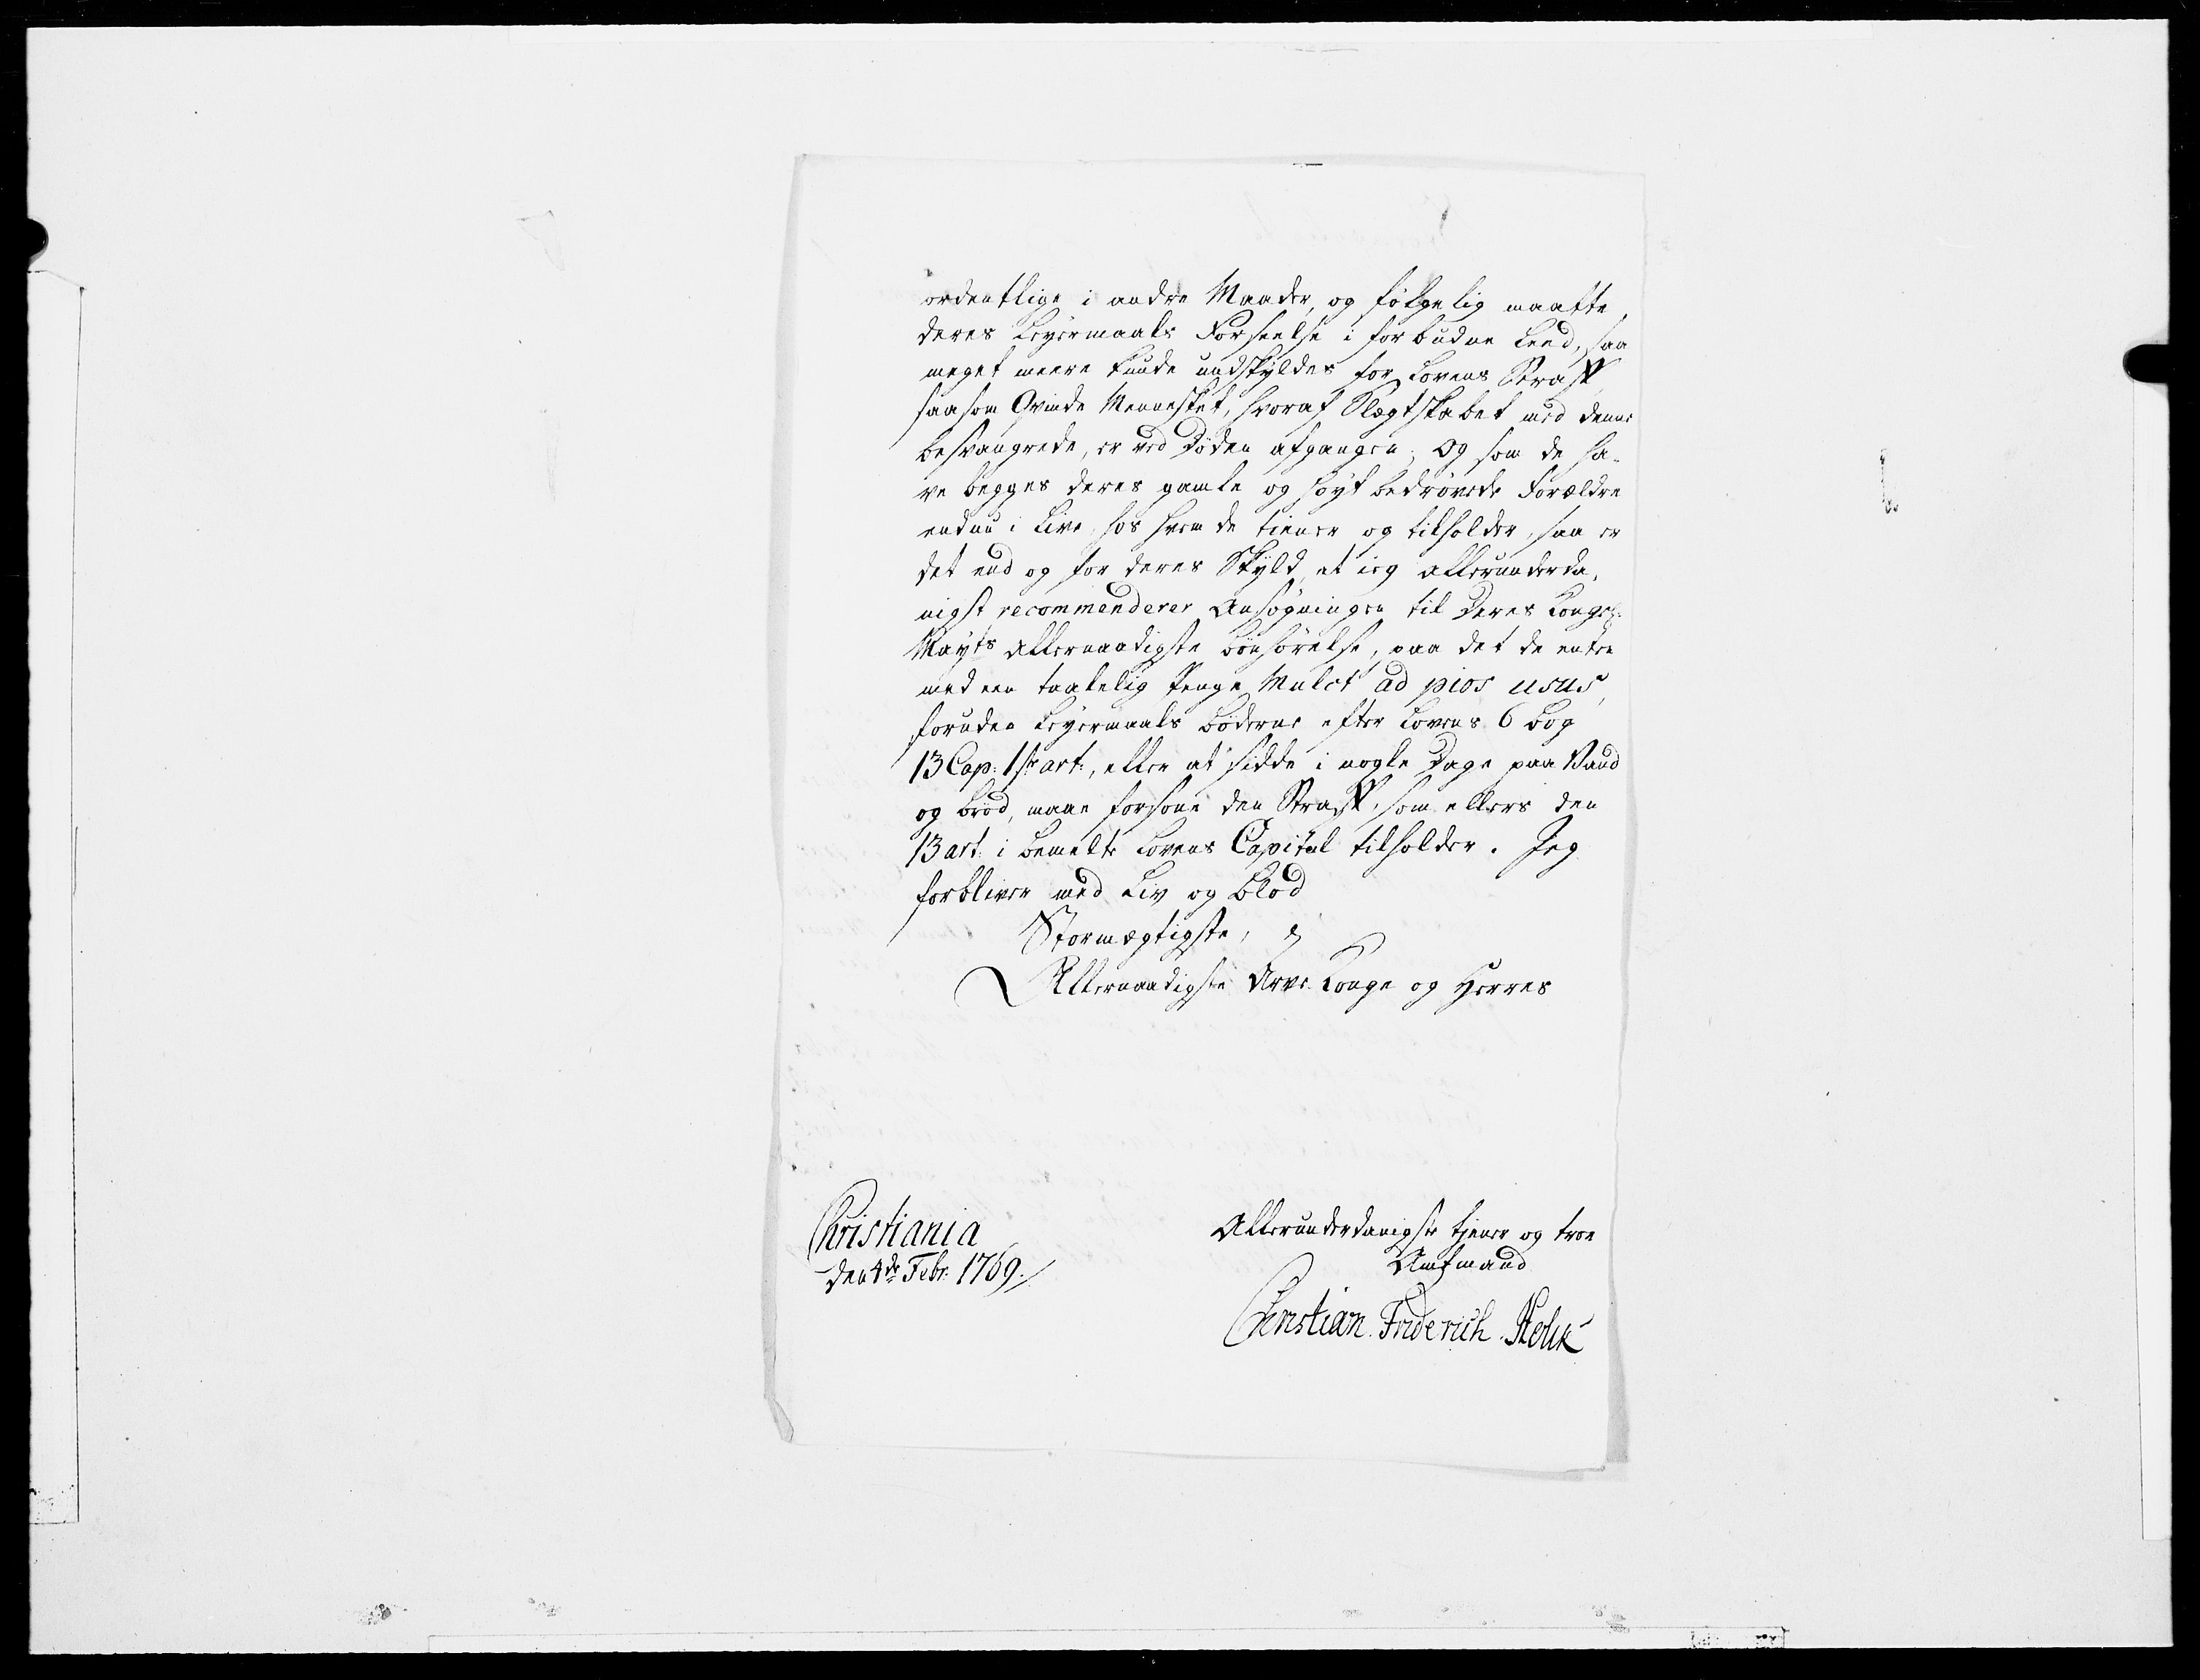 ordentlige i andre Maader, og følgelig maatte
deres Leyermaals Forseelse i forbudne Leed, saa
meget meere kunde undskyldes for Lovens Straff,
saasom Qvinde Mennesket, hvoraf Slægtskabet med denne
besvangrede, er ved Døden afgangen; Og som de ha-
ve begges deres gamle og høyt bedrøvede Forældre
endnu i Live, hos hvem de tiener og tilholder, saa er
det end og for deres Skyld, at ieg allerunderda-
nigst recommenderer Ansøgningen til Deres Kongel:
Mayts allernaadigste bønhørelse, paa det de enten
med een taalelig Penge Mulct ad pios usus,
foruden Leyermaals bøderne efter Lovens 6 bog
13 Cap: 1ste art:, eller at sidde i nogle Dage paa Vand
og brød, maae forsone den Straff, som ellers den
13 art: i bemelte Lovens Capitul tilholder. Jeg
forbliver med Liv og blod
Stormægtigste,
Allernaadigste Arve Konge og Herres
Christiania
den 4de Febr: 1769.
Allerunderdanigste tjener og troe
Amtmand
Christian Friderich Holck